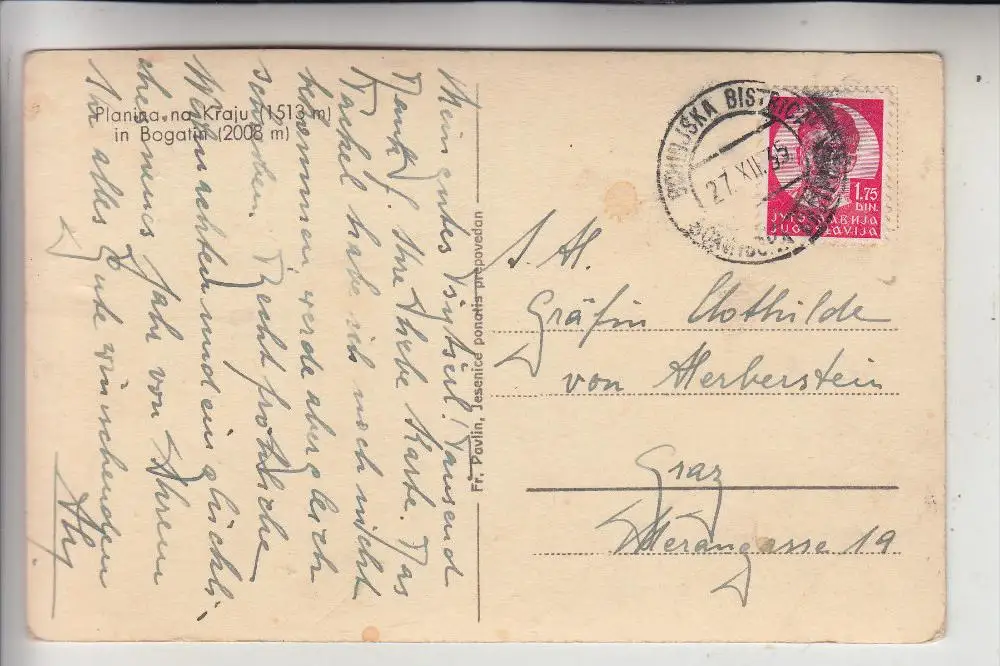 Planina na Kraju (1513 m)
in Bogatin (2008 m)
Mein gutes Tausend
Dank f. Ihre liebe Karte. Das
Packel habe ich noch nicht
bekommen, werde aber gleich
schreiben. Recht fröhliche
Weihnachten und ein glückli-
ches neues Jahr von Ihrem
Ihr alles Gute wünschenden
Fr. Pavlin, Jesenice ponatis prepovedan
BISTRICA
27.XII.35
1.75
DIN.
ЈУГОСЛАВИЈА
JUGOSLAVIJA
Gräfin Clothilde
von Herberstein
Graz
Merangasse 19